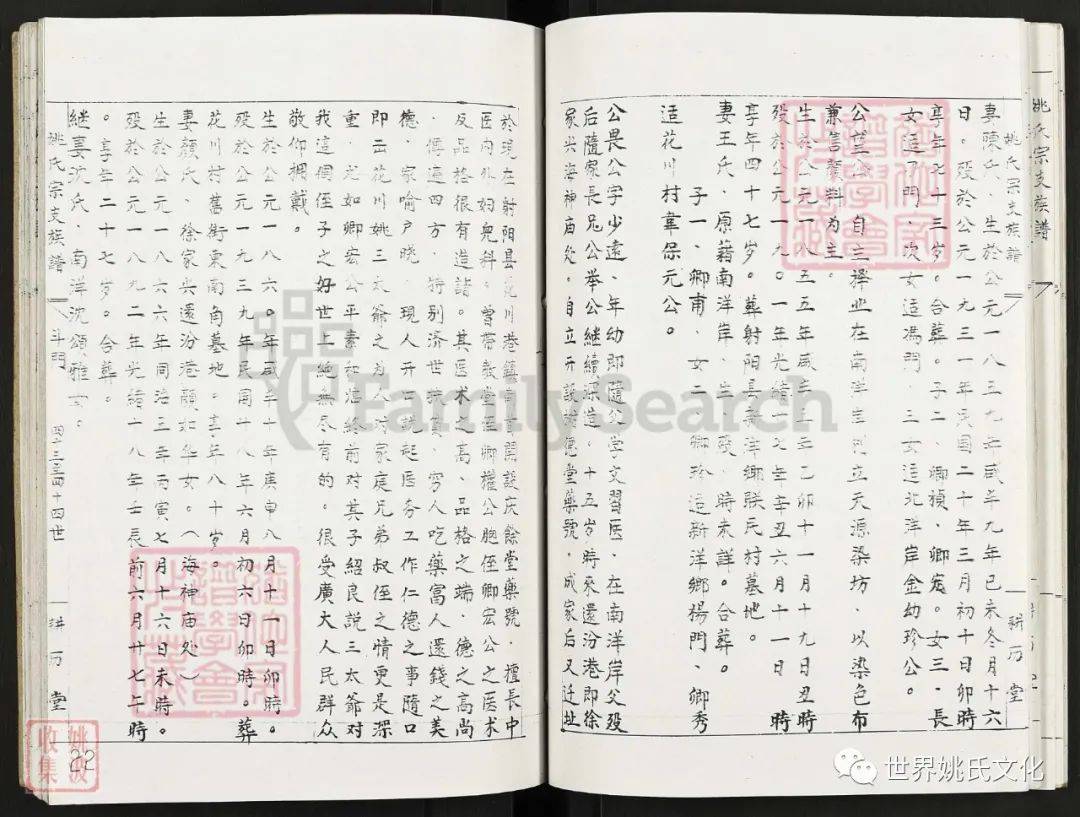 姚氏宗支族譜
耕历堂
妻陳氏、生於公元一八三九年咸丰九年己未冬月十六
日。殁於公元一九三一年民國二十年三月初十日卯時
享年七十三岁。合葬。子二、卿禎、卿宏。女三、長
女适了門、次女适馮門、三女适北洋岸金幼珍公。
公 自立擇业在南洋岸 立天源染坊．以染色布
兼售顏料为主。
生於公元一八五五年咸丰五年乙卯十一月十九日丑時
殁於公元一九〇一年光緒二七年辛丑六月十一日 時
享年四十七岁。葬射阳县 洋鄉朕民村墓地。
妻王氏、原籍南洋岸、生、殁、時未詳。合葬。
子一、卿甫、女二、卿珍适新洋鄉楊門、卿秀
适花川村韋保元公。
公畏公字少遠、年幼即隨父学文習医．在南洋岸父殁
后隨家長兄公举公継續深造．十五岁時來還汾港即徐
家兴海神庙处．自立开設 德堂藥號．成家后又迁址
於現在射阳县花川港鎮 開設庆餘堂藥號．擅長中
医内外妇兒科。曾带教堂侄卿權公胞侄卿宏公之医术
反品格很有造詣。其医术之高、品格之端、德之高尚
．傳遍四方．特别济世扶貧、穷人吃藥富人還錢之美
德．家喻户曉．現人开口説起医务工作仁德之事隨口
即云花川姚三太爺之为人対家庭兄弟叔侄之情更是深
重．尤如卿宏公平素和临終前对其子紹良説三太爺对
我這個侄子之好世上絶無尽有的。很受廣大人民群众
敬仰拥戴。
生於公元一八六〇年咸丰十年庚申八月十一日卯時。
殁於公元一九三九年民国廿八年六月初六日卯時。葬
花川村舊街東南角墓地。享年八十岁。
妻顏氏、徐家兴還汾港顏如华女。（海神庙处）
生於公元一八六六年同治三年丙寅七月十六日未時。
殁於公元一八九二年光緒十八年壬辰前六月廿七午時
。享年二十七岁。合葬。
継妻沈氏、南洋沈頌雅女．
姚氏宗支族譜
斗門
四十三至四十四世
耕历堂
姚波
收集
22
FamilySearch
世界姚氏文化